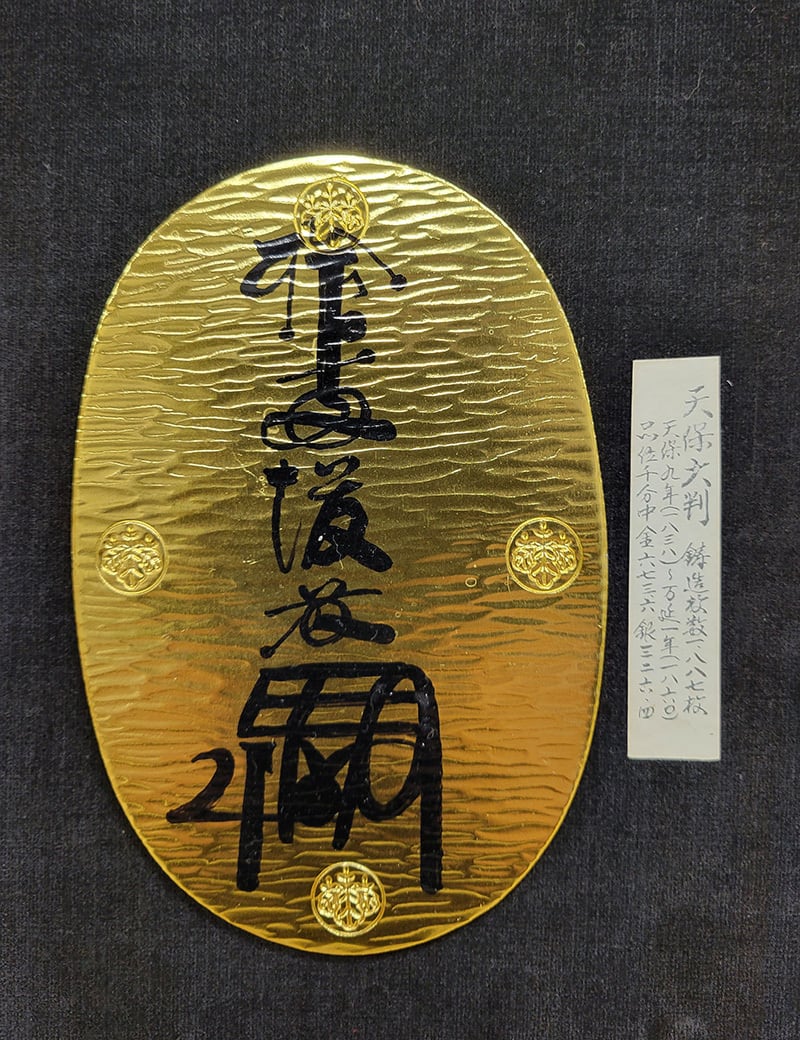 拾両後藤
天保大判 鋳造枚数一八八七枚
天保九年(一八三八)~万延一年(一八六〇)
品位千分中金六七三六銀三二六・四